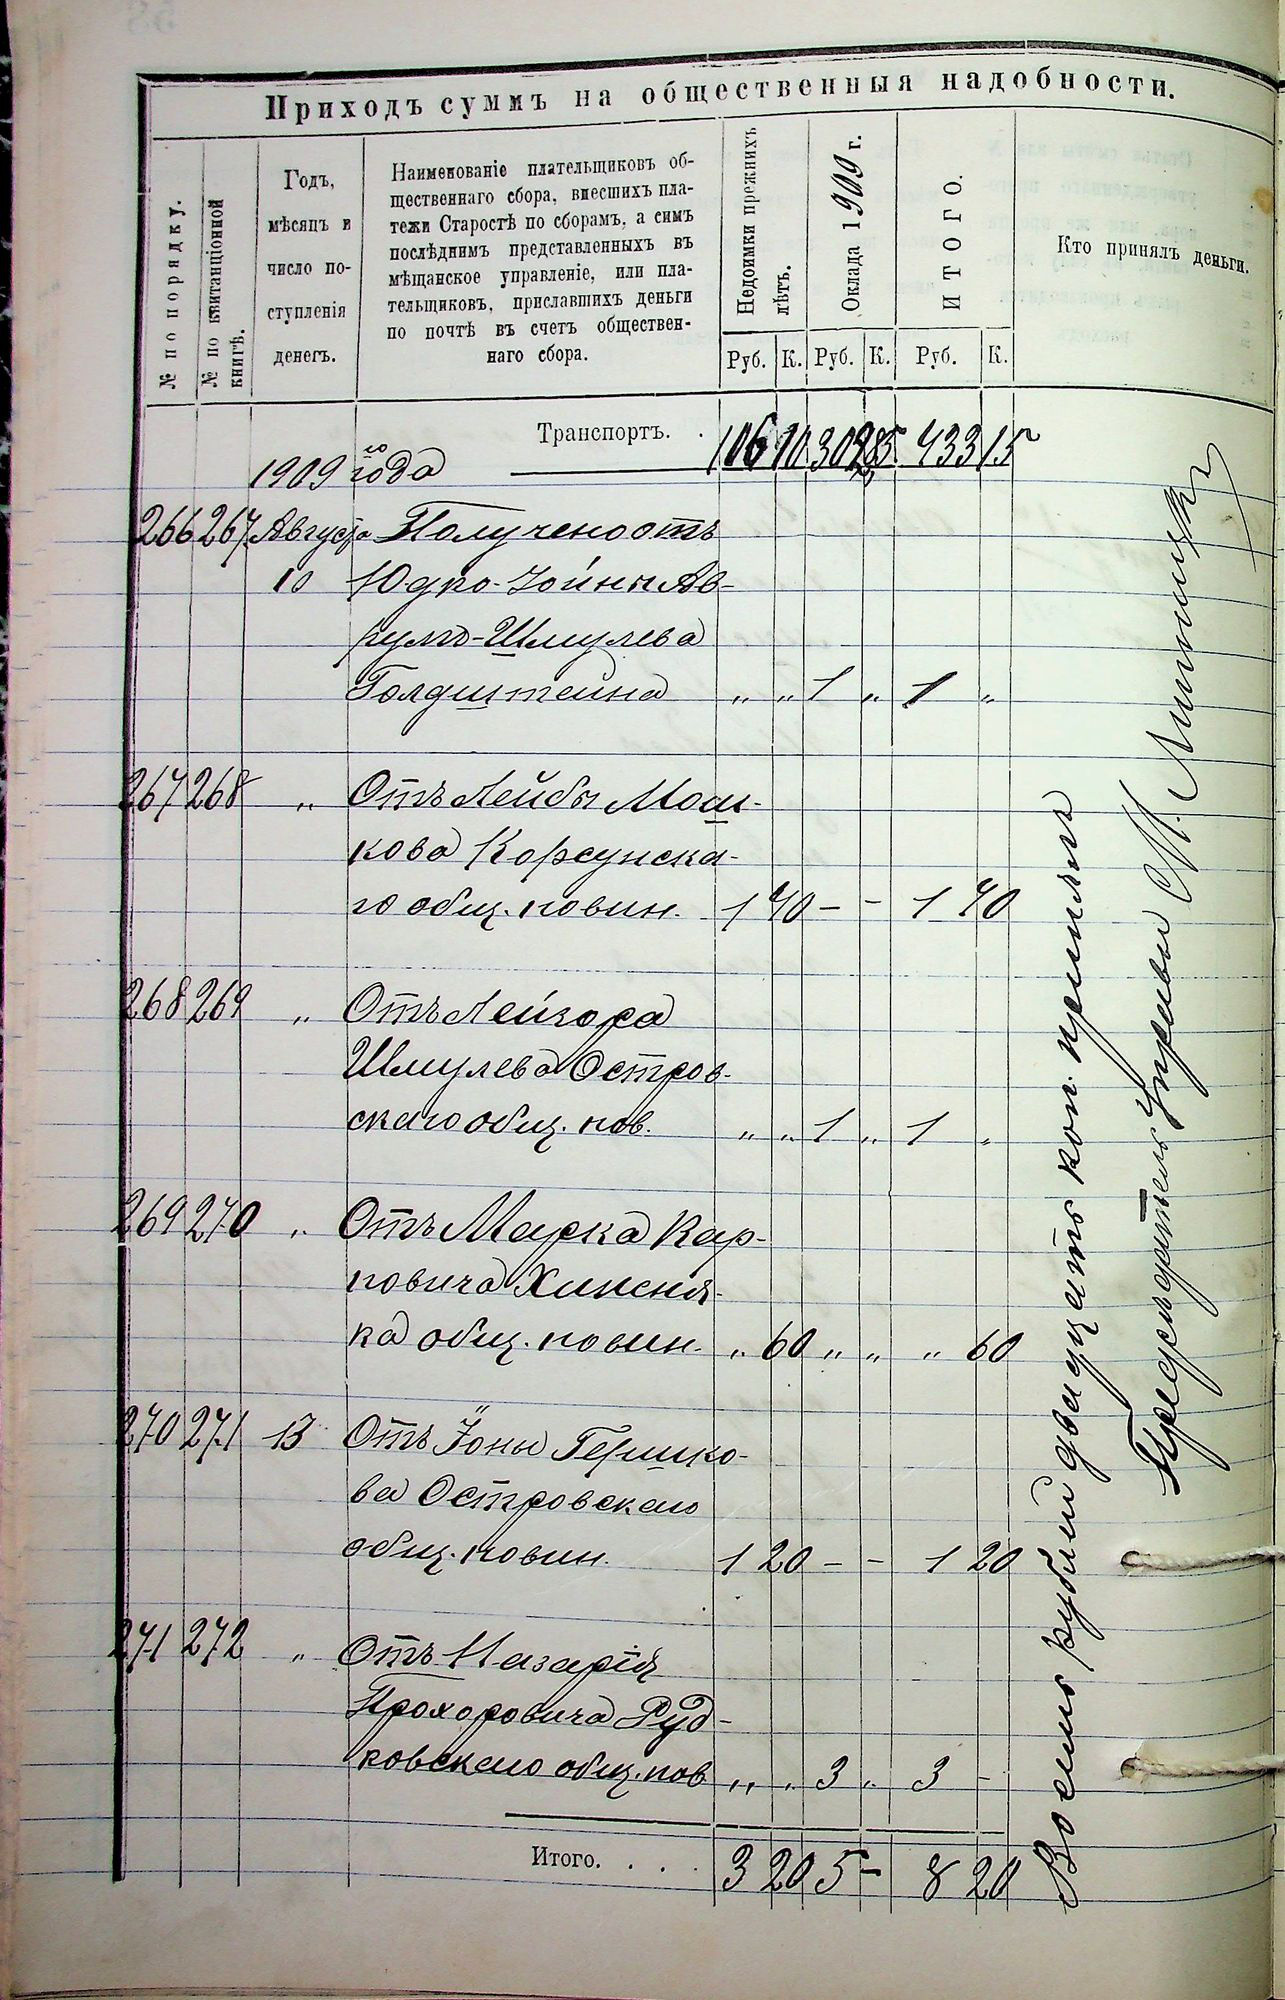 Приходъ суммъ на общественныя надобности.
№ по порядку.
№ по квитанціонной
книгѣ.
Годъ,
мѣсяцъ и
число по-
ступленія
денегъ.
Наименованіе плательщиковъ об-
щественнаго сбора, внесшихъ пла-
тежи Старостѣ по сборамъ, а симъ
послѣднимъ представленныхъ въ
мѣщанское управленіе, или пла-
тельщиковъ, приславшихъ деньги
по почтѣ въ счетъ обществен-
наго сбора.
Недоимки прежнихъ
лѣтъ.
Оклада 1909 г.
ИТОГО.
Кто принялъ деньги.
Руб. К. Руб. К. Руб. К.
Транспортъ. . 106 10 309 85 433 15
1909 го года
266 267 Августа Получено отъ
10
рума-Шмулева
Голдштейна " " 1 " 1 "
267 268 " Отъ Лейбы Мош-
кова Корсунска-
го общ. повин. 1 40 - - 1 40
268 269 " Отъ Лейзора
Шмулева Остров-
скаго общ. пов. " " 1 " 1 "
269 270 " Отъ Марка Кар-
повича Хижня-
ка общ. повин. " 60 " " " 60
270 271 13 Отъ Іоны Гершко-
ва Островскаго
общ. повин. 1 20 - - 1 20
271 272 " Отъ Назарія
Прохоровича Руд-
ковскаго общ. пов " " 3 " 3 -
Итого. . . . 3 20 5 - 8 20
Восемь рублей двадцать коп. принялъ
Предсѣдатель Управы